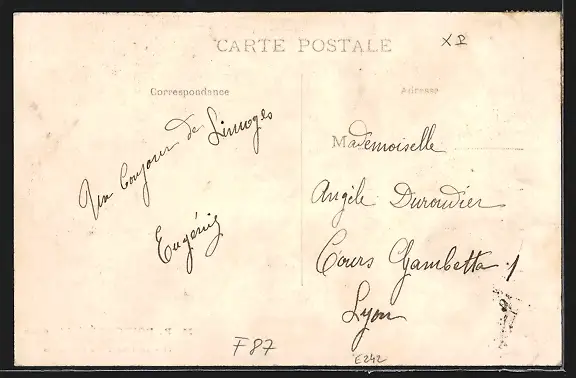 CARTE POSTALE
X P
Correspondance
Adresse
Un bonjour de Limoges
Eugénie
Mademoiselle
Angèle Durondier
Cours Gambetta 1
Lyon
F87
E242